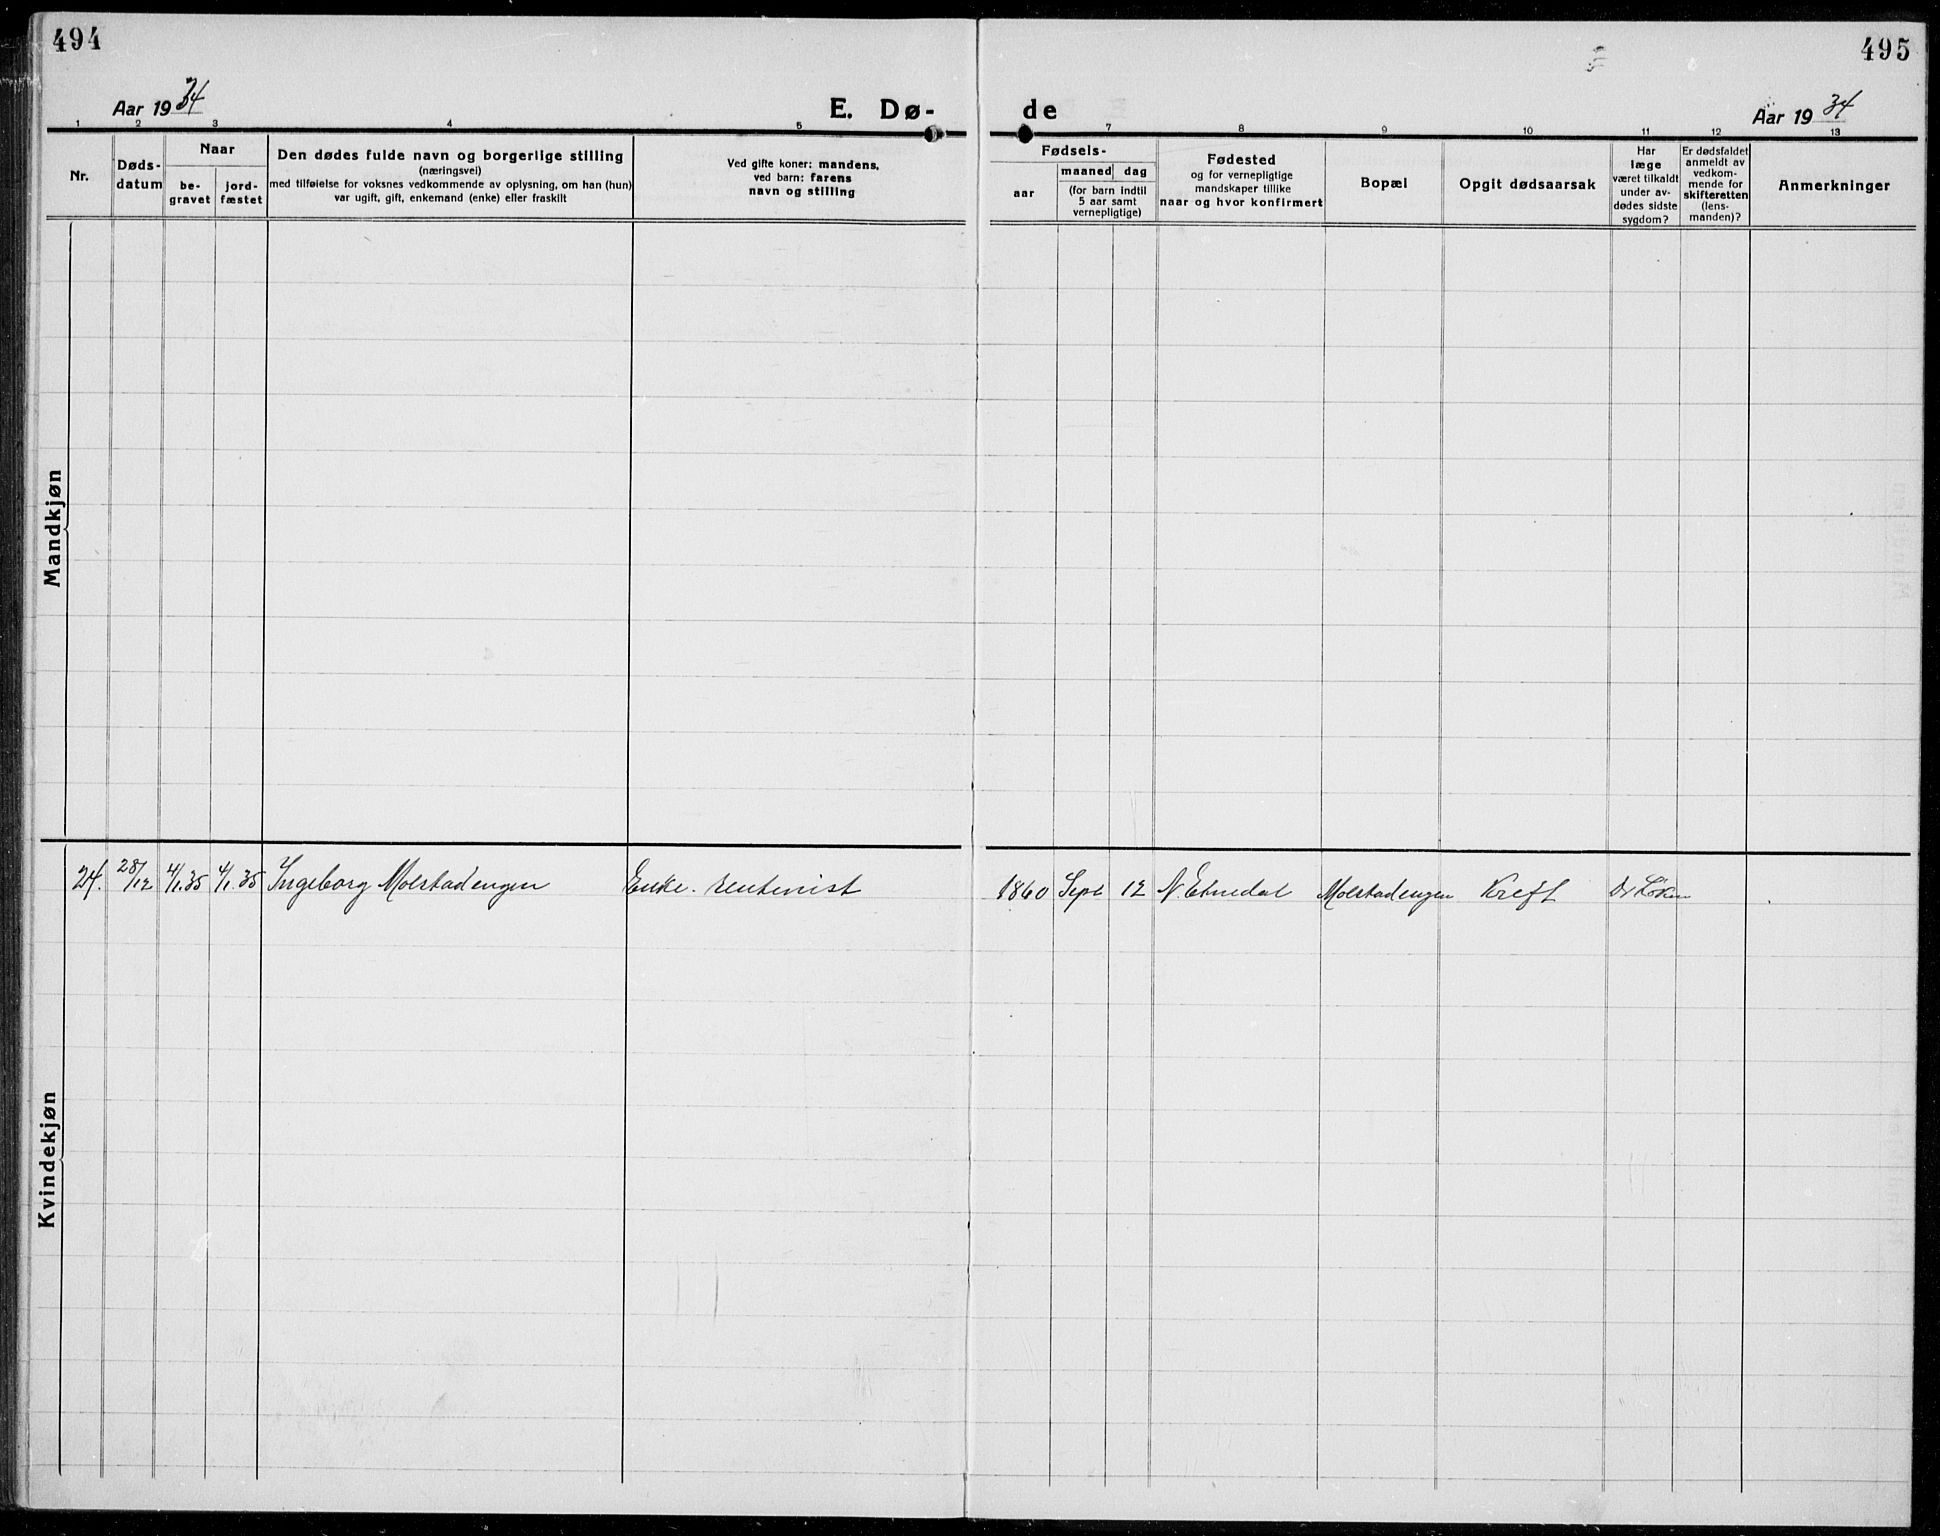 494
495
Aar 1934
E. Dø-
de
Aar 1934
1 2 3 4 5 7 8 9 10 11 12 13
Nr.
Døds-
datum
Naar
be-
gravet
jord-
fæstet
Den dødes fulde navn og borgerlige stilling
(næringsvei)
med tilføielse for voksnes vedkommende av oplysning, om han (hun)
var ugift, gift, enkemand (enke) eller fraskilt
Ved gifte koner: mandens,
ved barn: farens
navn og stilling
Fødsels-
aar
maaned
dag
(for barn indtil
5 aar samt
vernepligtige)
Fødested
og for vernepligtige
mandskaper tillike
naar og hvor konfirmert
Bopæl
Opgit dødsaarsak
Har
læge
været tilkaldt
under av-
dødes sidste
sygdom?
Er dødsfaldet
anmeldt av
vedkom-
mende for
skifteretten
(lens-
manden)?
Anmerkninger
Mandkjøn
24. 28/12 4/1.35 4/1.35 Ingeborg Molstadengen Enke. rentenist 1860 Sept 12 N. Etnedal Molstadengen Kreft Dr Løken
Kvindekjøn